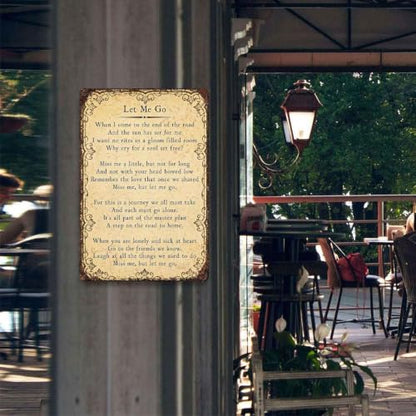 Let Me Go
When I come to the end of the road
And the sun has set for me
I want no rites in a gloom filled room
Why cry for a soul set free?
Miss me a little, but not for long
And not with your head bowed low
Remember the love that once we shared
Miss me, but let me go.
For this is a journey we all must take
And each must go alone.
It's all part of the master plan
A step on the road to home.
When you are lonely and sick at heart
Go to the friends we know.
Laugh at all the things we used to do
Miss me, but let me go.